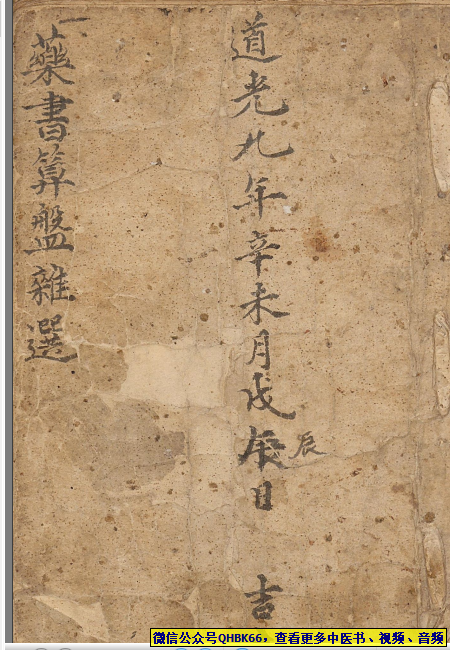 道光九年辛未月戊辰日 吉
辰
一藥書算盤雜選
微信公众号QHBK66，查看更多中医书、视频、音频